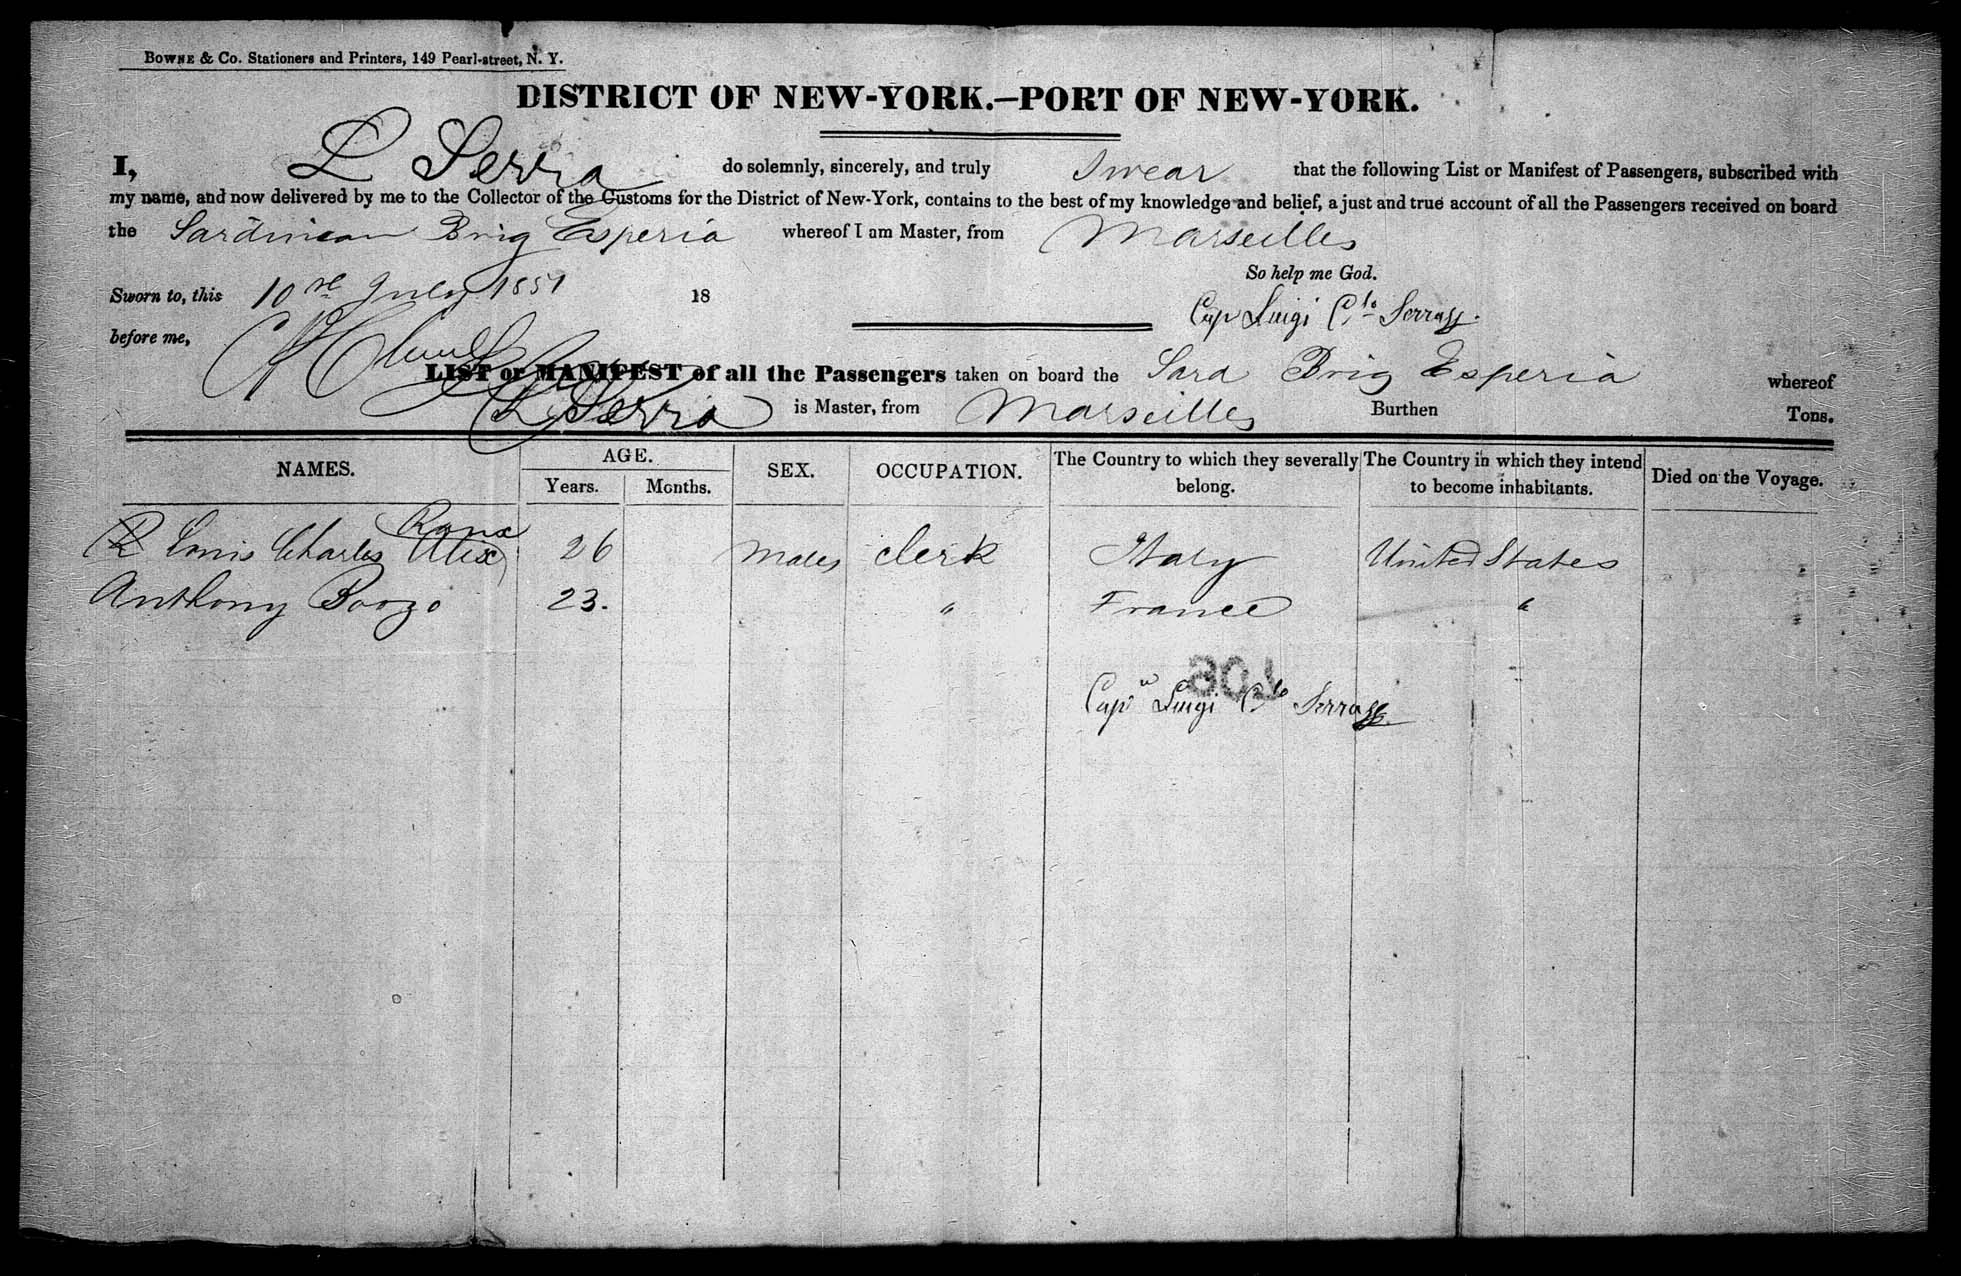 BOWNE & Co. Stationers and Printers, 149 Pearl-street, N. Y.
DISTRICT OF NEW-YORK.—PORT OF NEW-YORK.
I, L Serra do solemnly, sincerely, and truly swear that the following List or Manifest of Passengers, subscribed with
my name, and now delivered by me to the Collector of the Customs for the District of New-York, contains to the best of my knowledge and belief, a just and true account of all the Passengers received on board
the Sardinian Brig Esperia whereof I am Master, from Marseilles
So help me God.
Sworn to, this 10 July 1851 18
Cap Luigi Serra
before me,
LIST or MANIFEST of all the Passengers taken on board the Sard Brig Esperia whereof
L Serra is Master, from Marseilles Burthen Tons.
NAMES. AGE. Years. Months. SEX. OCCUPATION. The Country to which they severally belong. The Country in which they intend to become inhabitants. Died on the Voyage.
Louis Charles Alix 26 Males Clerk Italy United States
Anthony Boozo 23. " France "
Cap Luigi Serra